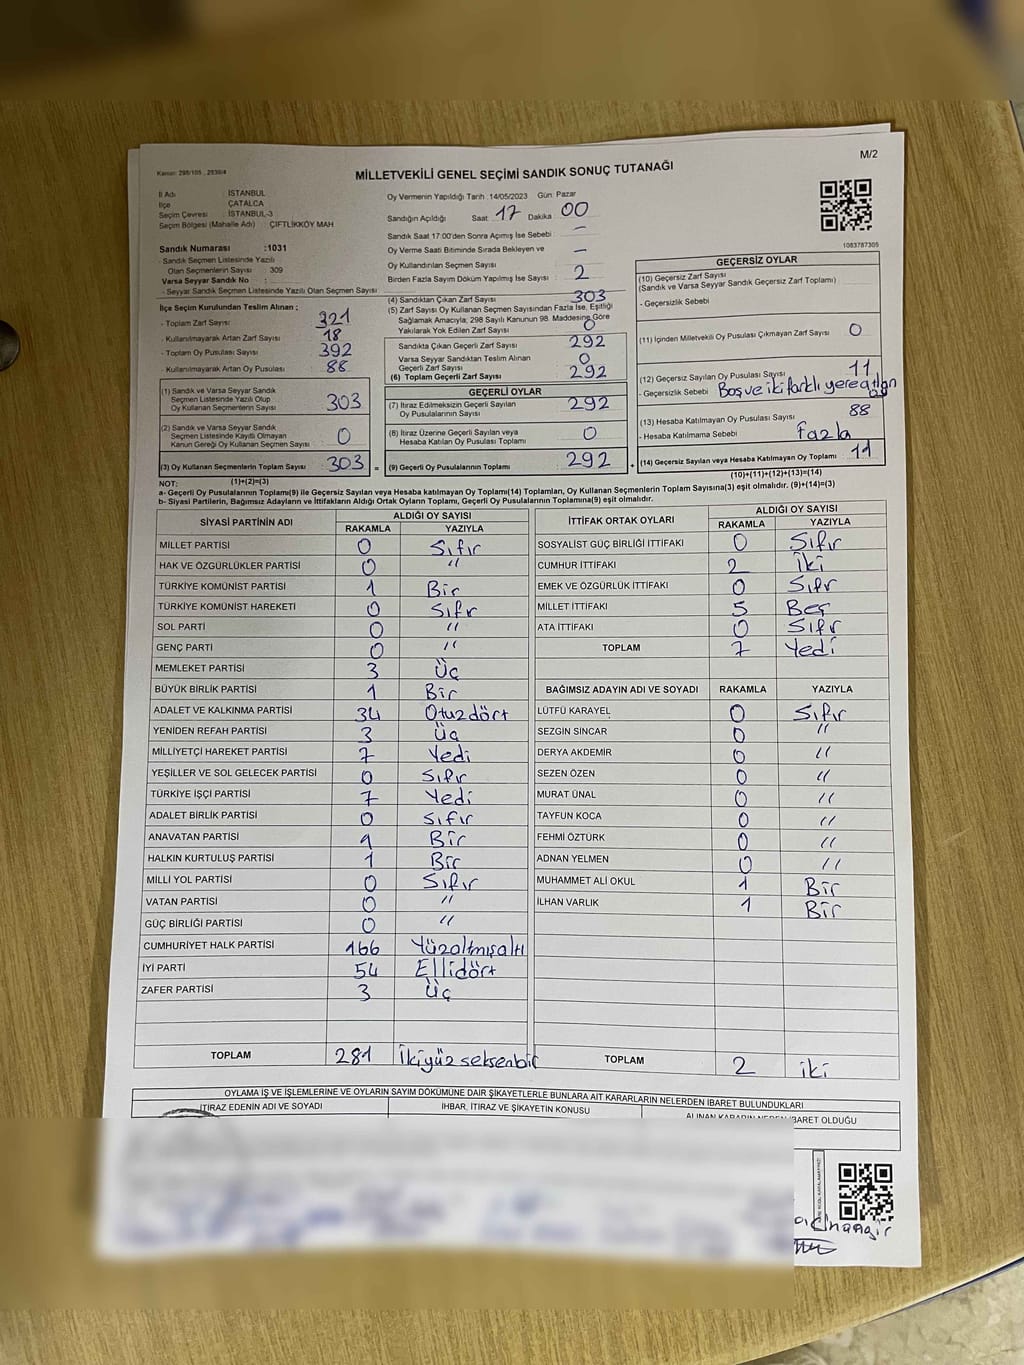 M/2
Kanun: 298/105 , 2839/4
MİLLETVEKİLİ GENEL SEÇİMİ SANDIK SONUÇ TUTANAĞI
İl Adı : İSTANBUL
İlçe : ÇATALCA
Seçim Çevresi : İSTANBUL-3
Seçim Bölgesi (Mahalle Adı) : ÇİFTLİKKÖY MAH
Sandık Numarası :1031
- Sandık Seçmen Listesinde Yazılı
Olan Seçmenlerin Sayısı : 309
Varsa Seyyar Sandık No :
- Seyyar Sandık Seçmen Listesinde Yazılı Olan Seçmen Sayısı:
Oy Vermenin Yapıldığı Tarih :14/05/2023 Gün: Pazar
Sandığın Açıldığı Saat : 17 Dakika : 00
Sandık Saat 17:00'den Sonra Açımış İse Sebebi : –
Oy Verme Saati Bitiminde Sırada Bekleyen ve
Oy Kullandırılan Seçmen Sayısı : –
Birden Fazla Sayım Döküm Yapılmış İse Sayısı : 2
1083787305
İlçe Seçim Kurulundan Teslim Alınan ;
- Toplam Zarf Sayısı : 321
- Kullanılmayarak Artan Zarf Sayısı : 18
- Toplam Oy Pusulası Sayısı : 392
- Kullanılmayarak Artan Oy Pusulası : 88
(1) Sandık ve Varsa Seyyar Sandık
Seçmen Listesinde Yazılı Olup
Oy Kullanan Seçmenlerin Sayısı : 303
(2) Sandık ve Varsa Seyyar Sandık
Seçmen Listesinde Kayıtlı Olmayan
Kanun Gereği Oy Kullanan Seçmen Sayısı : 0
(3) Oy Kullanan Seçmenlerin Toplam Sayısı : 303 =
(1)+(2)=(3)
(4) Sandıktan Çıkan Zarf Sayısı : 303
(5) Zarf Sayısı Oy Kullanan Seçmen Sayısından Fazla İse, Eşitliği
Sağlamak Amacıyla; 298 Sayılı Kanunun 98. Maddesine Göre
Yakılarak Yok Edilen Zarf Sayısı : 0
Sandıkta Çıkan Geçerli Zarf Sayısı : 292
Varsa Seyyar Sandıktan Teslim Alınan
Geçerli Zarf Sayısı : 0
(6) Toplam Geçerli Zarf Sayısı : 292
GEÇERLİ OYLAR
(7) İtiraz Edilmeksizin Geçerli Sayılan
Oy Pusulalarının Sayısı : 292
(8) İtiraz Üzerine Geçerli Sayılan veya
Hesaba Katılan Oy Pusulası Toplamı : 0
(9) Geçerli Oy Pusulalarının Toplamı : 292 +
GEÇERSİZ OYLAR
(10) Geçersiz Zarf Sayısı :
(Sandık ve Varsa Seyyar Sandık Geçersiz Zarf Toplamı)
- Geçersizlik Sebebi :
(11) İçinden Milletvekili Oy Pusulası Çıkmayan Zarf Sayısı : 0
(12) Geçersiz Sayılan Oy Pusulası Sayısı : 11
- Geçersizlik Sebebi : Boş ve iki farklı yere atılan
oy
(13) Hesaba Katılmayan Oy Pusulası Sayısı : 88
- Hesaba Katılmama Sebebi : Fazla
(14) Geçersiz Sayılan veya Hesaba Katılmayan Oy Toplamı : 11
(10)+(11)+(12)+(13)=(14)
NOT:
a- Geçerli Oy Pusulalarının Toplamı(9) ile Geçersiz Sayılan veya Hesaba katılmayan Oy Toplamı(14) Toplamları, Oy Kullanan Seçmenlerin Toplam Sayısına(3) eşit olmalıdır. (9)+(14)=(3)
b- Siyasi Partilerin, Bağımsız Adayların ve İttifakların Aldığı Ortak Oyların Toplamı, Geçerli Oy Pusulalarının Toplamına(9) eşit olmalıdır.
SİYASİ PARTİNİN ADI ALDIĞI OY SAYISI
RAKAMLA YAZIYLA
MİLLET PARTİSİ 0 Sıfır
HAK VE ÖZGÜRLÜKLER PARTİSİ 0 "
TÜRKİYE KOMÜNİST PARTİSİ 1 Bir
TÜRKİYE KOMÜNİST HAREKETİ 0 Sıfır
SOL PARTİ 0 "
GENÇ PARTİ 0 "
MEMLEKET PARTİSİ 3 Üç
BÜYÜK BİRLİK PARTİSİ 1 Bir
ADALET VE KALKINMA PARTİSİ 34 Otuzdört
YENİDEN REFAH PARTİSİ 3 Üç
MİLLİYETÇİ HAREKET PARTİSİ 7 Yedi
YEŞİLLER VE SOL GELECEK PARTİSİ 0 Sıfır
TÜRKİYE İŞÇİ PARTİSİ 7 Yedi
ADALET BİRLİK PARTİSİ 0 Sıfır
ANAVATAN PARTİSİ 1 Bir
HALKIN KURTULUŞ PARTİSİ 1 Bir
MİLLİ YOL PARTİSİ 0 Sıfır
VATAN PARTİSİ 0 "
GÜÇ BİRLİĞİ PARTİSİ 0 "
CUMHURİYET HALK PARTİSİ 166 Yüzaltmışaltı
İYİ PARTİ 54 Ellidört
ZAFER PARTİSİ 3 Üç
TOPLAM 281 İkiyüz seksenbir
İTTİFAK ORTAK OYLARI ALDIĞI OY SAYISI
RAKAMLA YAZIYLA
SOSYALİST GÜÇ BİRLİĞİ İTTİFAKI 0 Sıfır
CUMHUR İTTİFAKI 2 İki
EMEK VE ÖZGÜRLÜK İTTİFAKI 0 Sıfr
MİLLET İTTİFAKI 5 Beş
ATA İTTİFAKI 0 Sıfr
TOPLAM 7 Yedi
BAĞIMSIZ ADAYIN ADI VE SOYADI RAKAMLA YAZIYLA
LÜTFÜ KARAYEL 0 Sıfır
SEZGİN SİNCAR 0 "
DERYA AKDEMİR 0 "
SEZEN ÖZEN 0 "
MURAT ÜNAL 0 "
TAYFUN KOCA 0 "
FEHMİ ÖZTÜRK 0 "
ADNAN YELMEN 0 "
MUHAMMET ALİ OKUL 1 Bir
İLHAN VARLIK 1 Bir
TOPLAM 2 iki
OYLAMA İŞ VE İŞLEMLERİNE VE OYLARIN SAYIM DÖKÜMÜNE DAİR ŞİKAYETLERLE BUNLARA AİT KARARLARIN NELERDEN İBARET BULUNDUKLARI
İTİRAZ EDENİN ADI VE SOYADI İHBAR, İTİRAZ VE ŞİKAYETİN KONUSU ALINAN KARARIN NEDEN İBARET OLDUĞU